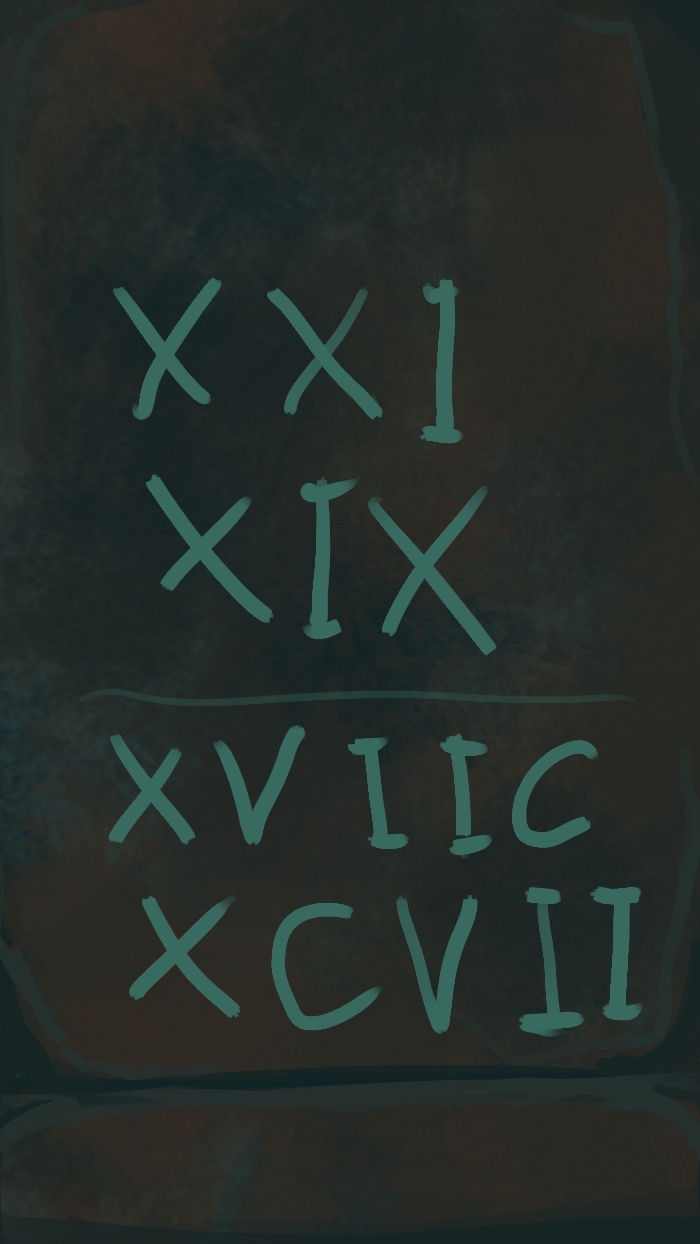 XXI
XIX
XVIIC
XCVII